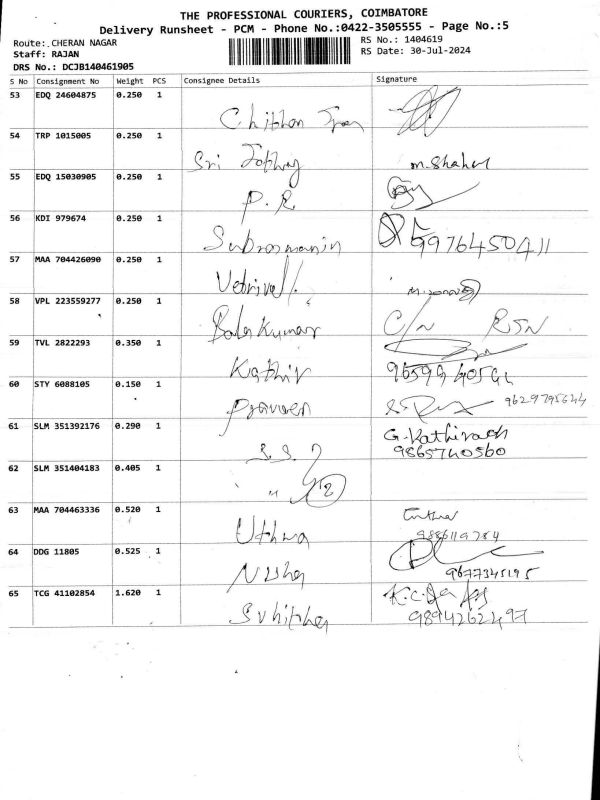 THE PROFESSIONAL COURIERS, COIMBATORE
Delivery Runsheet - PCM - Phone No.:0422-3505555 - Page No.:5
Route: CHERAN NAGAR RS No.: 1404619
Staff: RAJAN RS Date: 30-Jul-2024
DRS No.: DCJB140461905
S No Consignment No Weight PCS Consignee Details Signature
53 EDQ 24604875 0.250 1
54 TRP 1015005 0.250 1
Sri
55 EDQ 15030905 0.250 1
P. R
56 KDI 979674 0.250 1
9976450411
57 MAA 704426090 0.250 1
Vetrivel
58 VPL 223559277 0.250 1
Bala Kumar C/n RSN
59 TVL 2822293 0.350 1
Kathir
60 STY 6088105 0.150 1
Praveen 9629795644
61 SLM 351392176 0.290 1
G. Kathirvach
9865740560
62 SLM 351404183 0.405 1
2
63 MAA 704463336 0.520 1
64 DDG 11805 0.525 1
Nisha 9677345195
65 TCG 41102854 1.620 1
9894262497